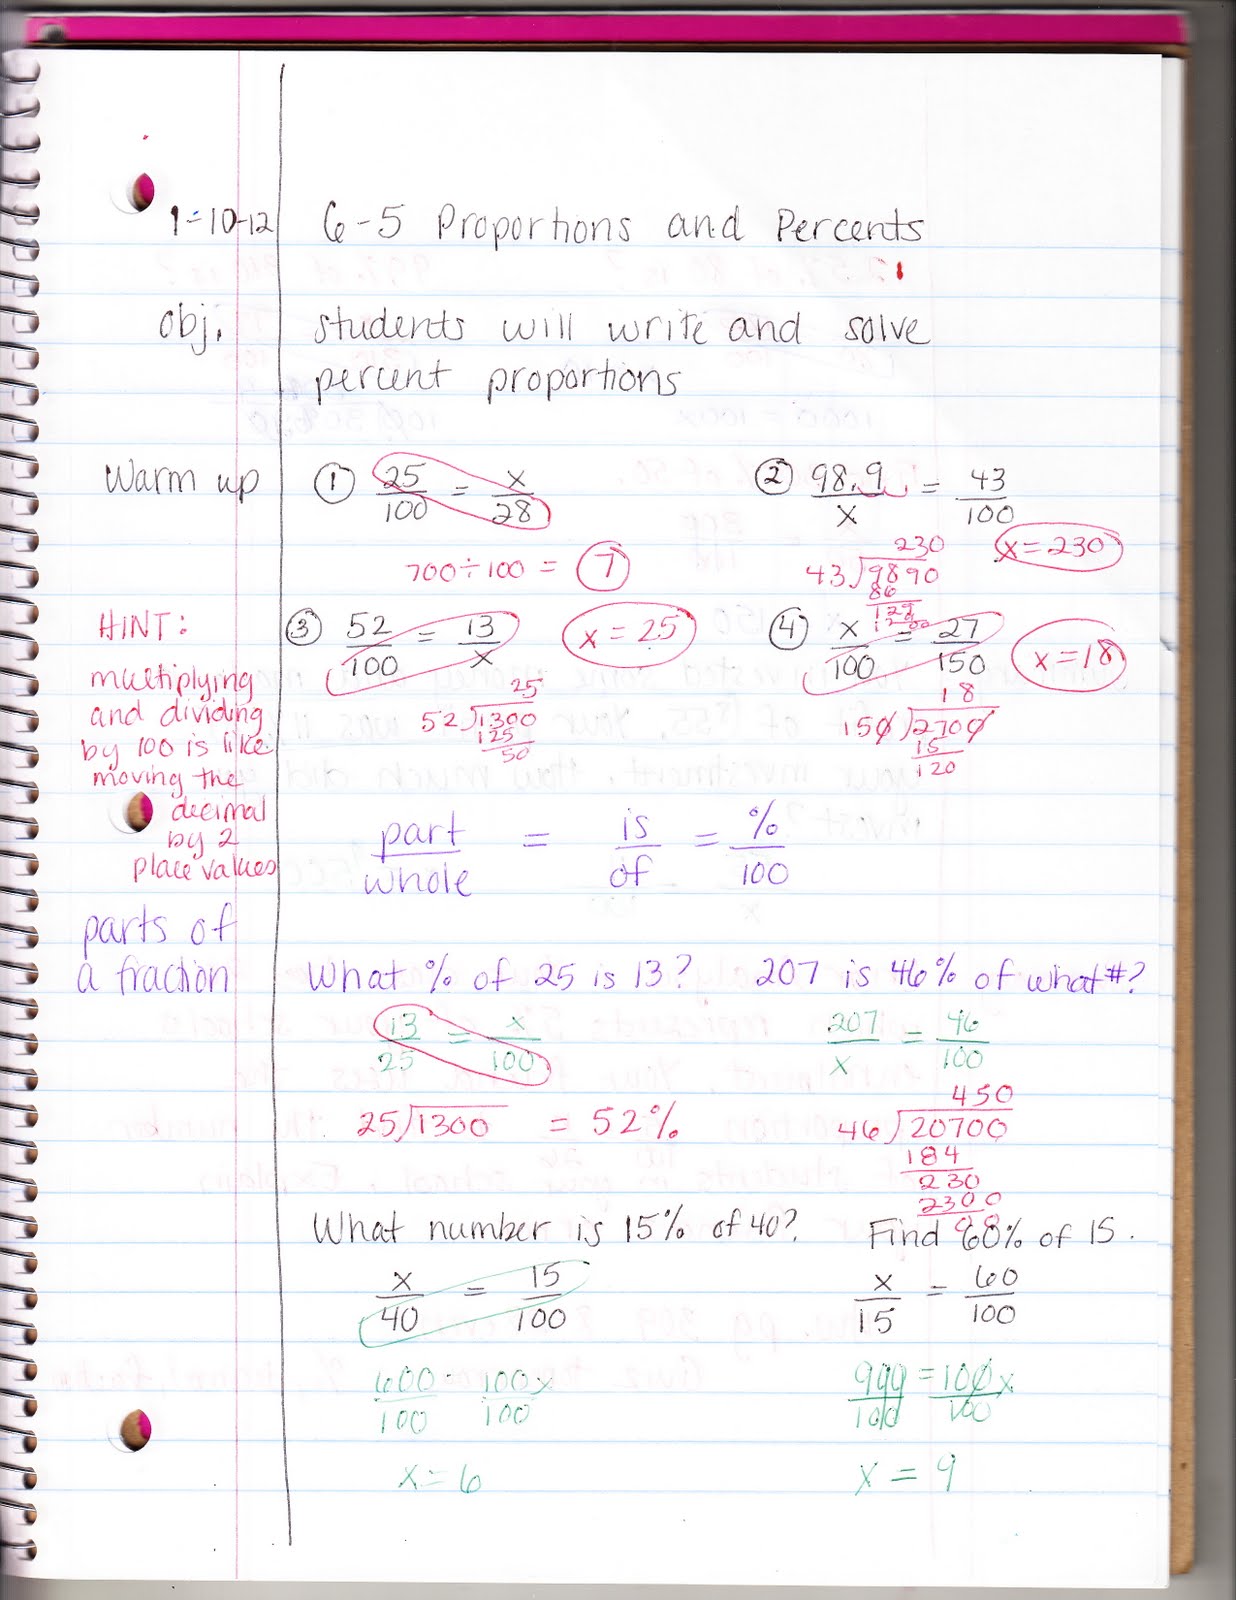 1-10-12 6-5 Proportions and Percents
obj. students will write and solve
percent proportions
Warm up ① 25/100 = x/28 ② 98.9/x = 43/100
700÷100 = 7
230
43)9890
86
129
x=230
HINT:
multiplying
and dividing
by 100 is like
moving the
decimal
by 2
place values
③ 52/100 = 13/x x=25
25
52)1300
125
50
④ x/100 = 27/150 x=18
18
150)2700
15
120
part/whole = is/of = %/100
parts of
a fraction
What % of 25 is 13?
13/25 = x/100
25)1300 = 52%
207 is 46% of what #?
207/x = 46/100
450
46)20700
184
230
2300
What number is 15% of 40?
x/40 = 15/100
600/100 100x/100
x=6
Find 60% of 15.
x/15 = 60/100
900/100 = 100x/100
x = 9